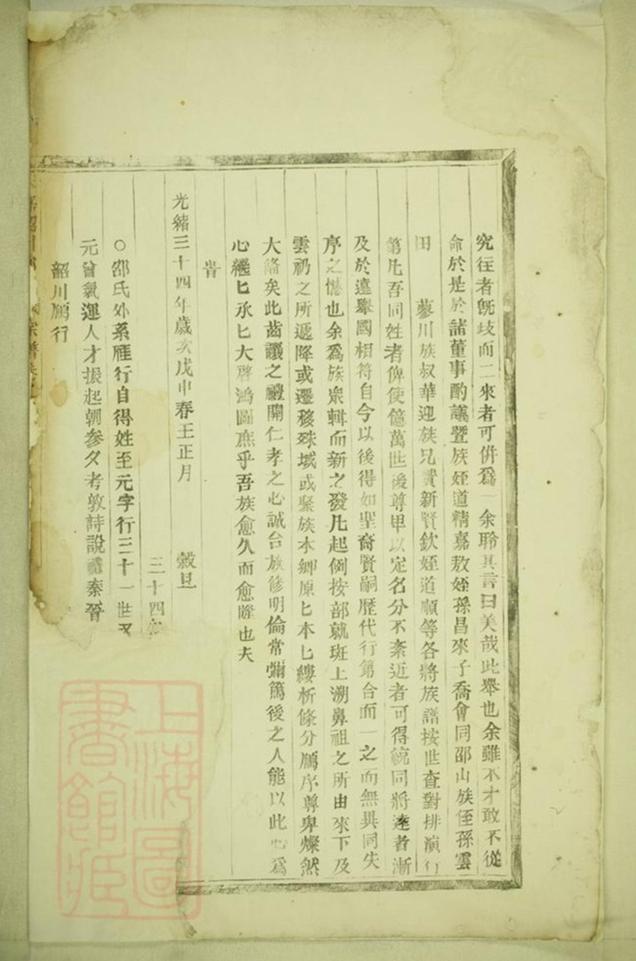 究往者旣歧而二來者可倂爲一余聆其言曰美哉此舉也余雖不才敢不從
命於是於諸董事酌議暨族姪道精嘉敖姪孫昌來子喬會同邵山族侄孫雲
田 蓼川族叔華迎族兄 新賢欽姪道順等各將族譜按世查對排演行
第凡吾同姓者俾使億萬世後尊卑以定名分不紊近者可得統同將遠者漸
及於遠舉國相符自今以後得如聖裔賢嗣歷代行第合而一之而無異同失
序之憾也余爲族衆輯而新之發凡起例按部就班上溯鼻祖之所由來下及
雲礽之所遞降或遷移殊域或聚族本鄉原匕本匕縷析條分鴈序尊卑燦然
大備矣此齒讓之禮開仁孝之心誠台族修明倫常彌篤後之人能以此心爲
心繼匕承匕大啓鴻圖庶乎吾族愈久而愈隆也夫
旹
光緒三十四年歲次戊申春王正月 穀旦
三十四
○邵氏外系雁行自得姓至元字行三十一世又
元曾氣運人才振起朝參夕考敦詩說禮秦晉
韶川鴈行
宗譜
上海圖書館藏